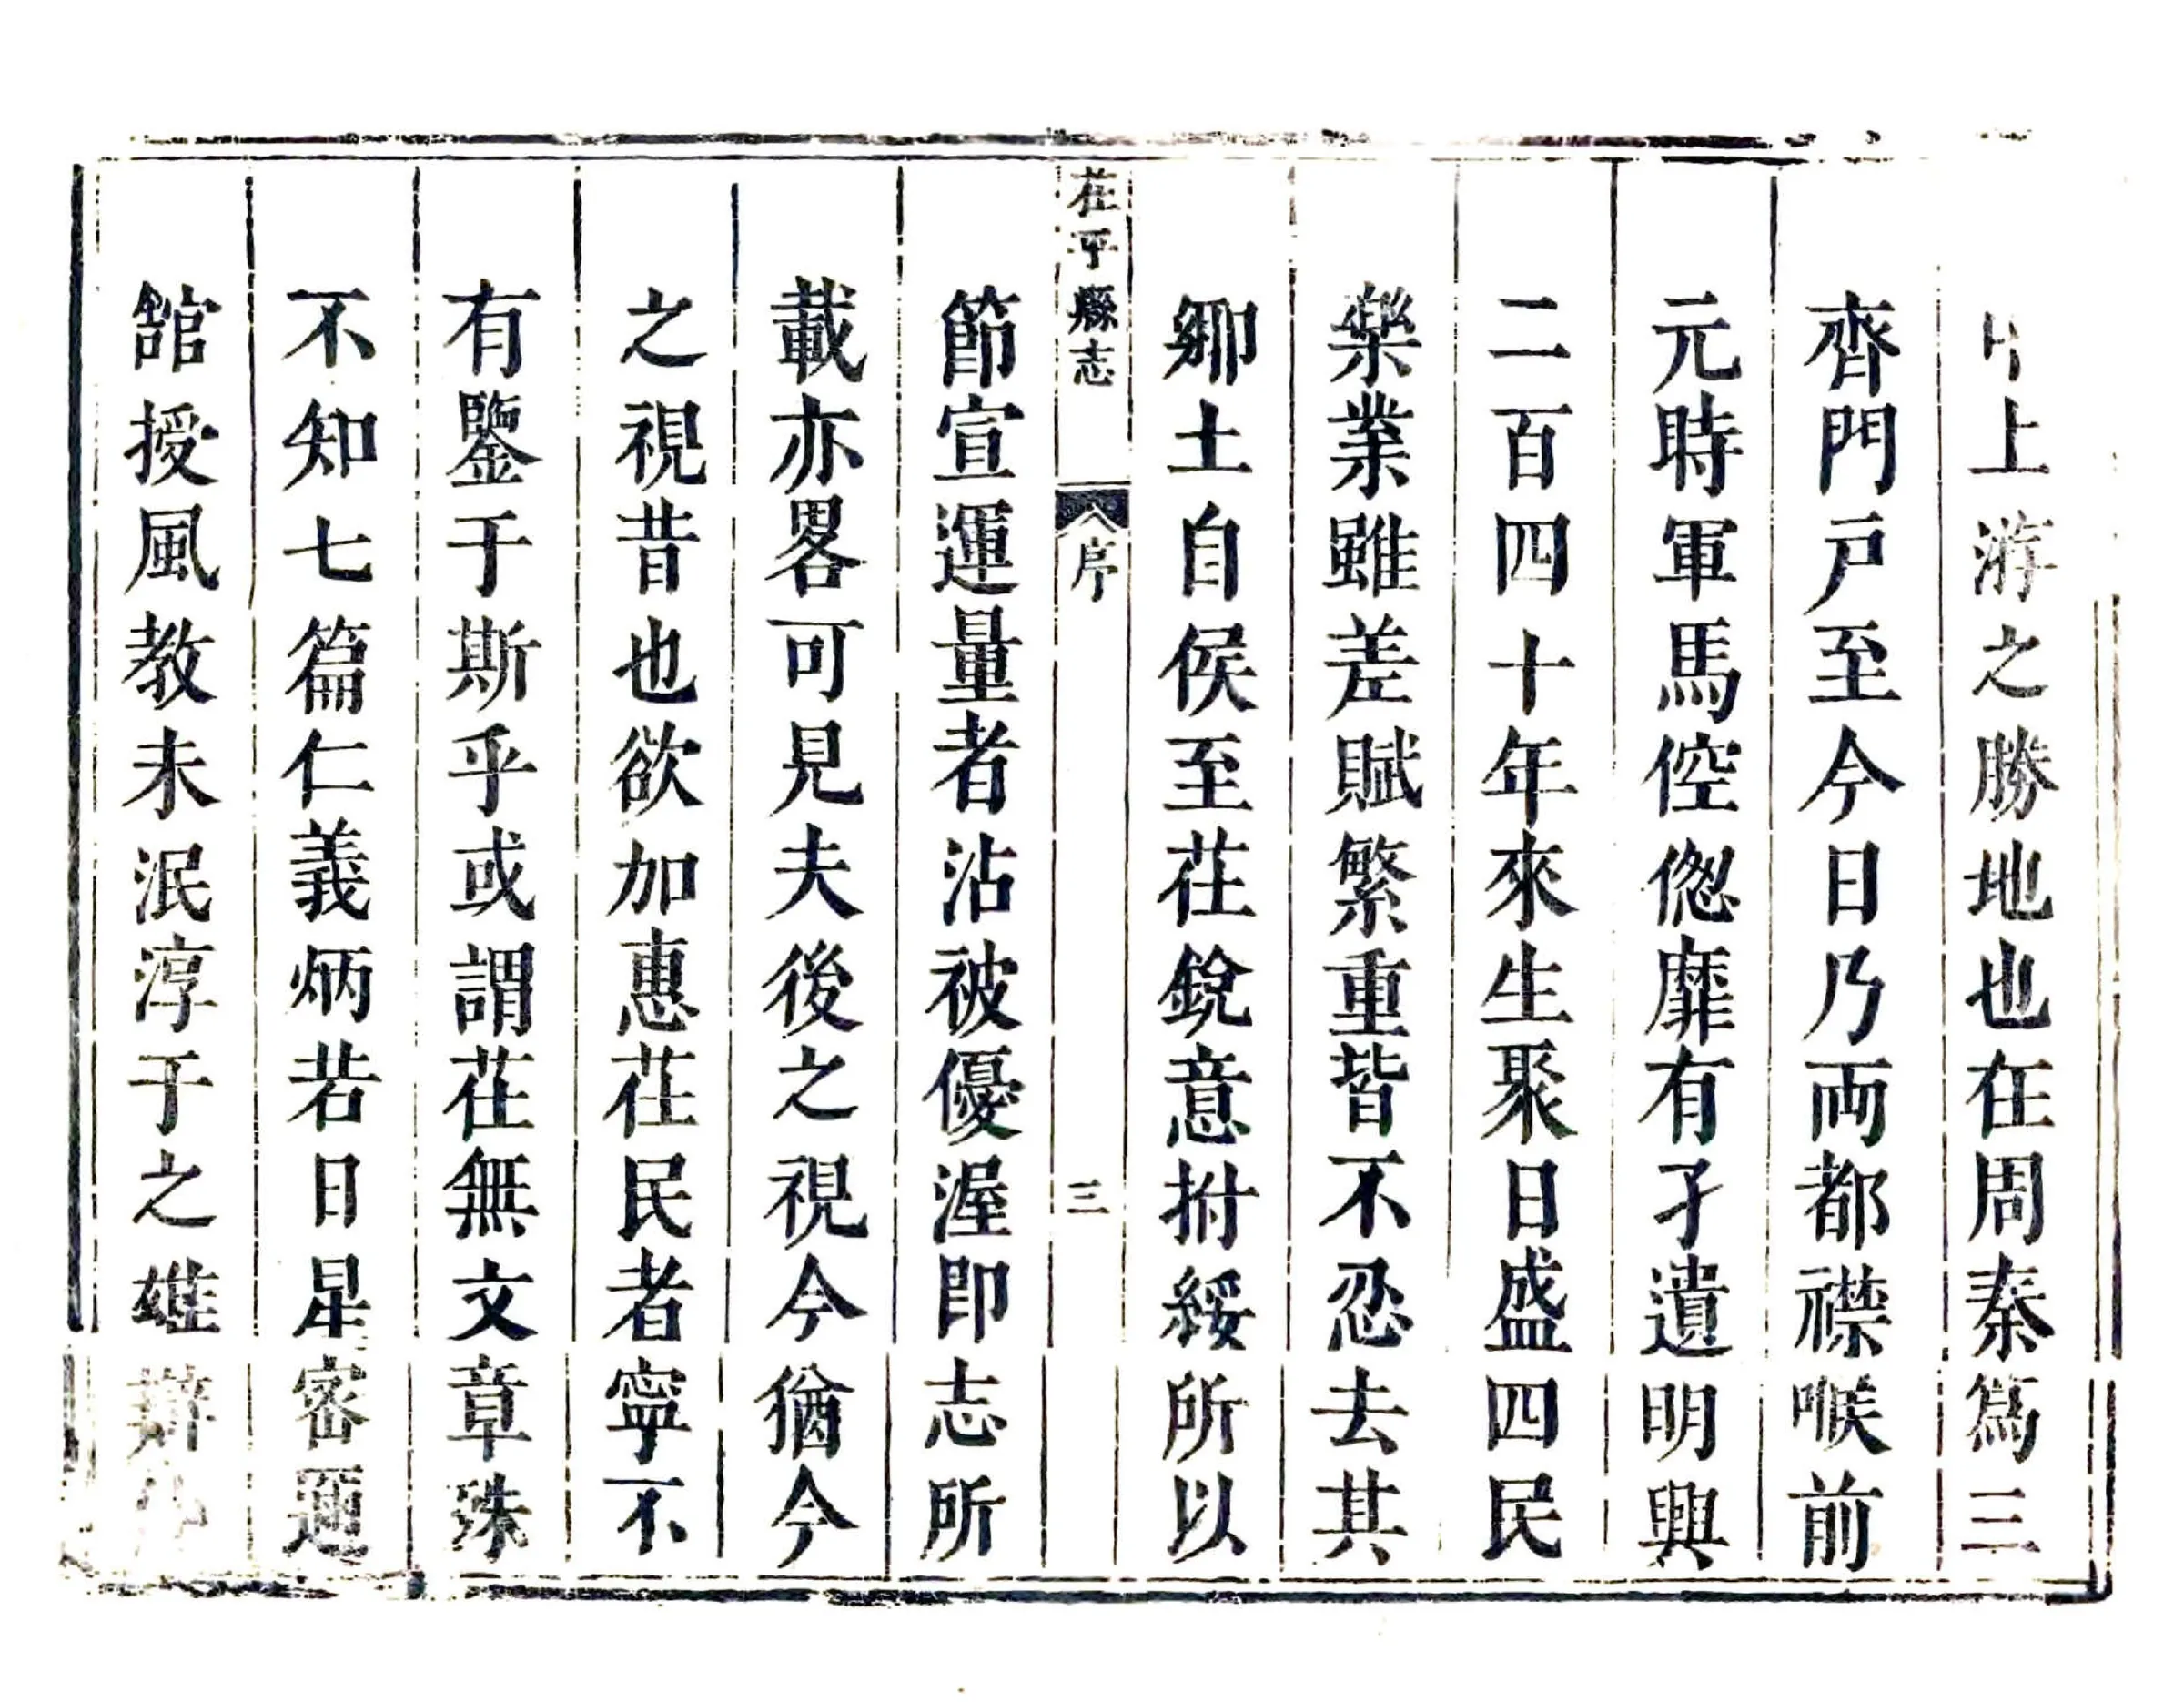 上游之勝地也在周秦爲三
齊門戸至今日乃両都襟喉前
元時軍馬倥偬靡有孑遺明興
二百四十年來生聚日盛四民
樂業雖差賦繁重皆不忍去其
鄉土自侯至茌銳意拊綏所以
茌平縣志
序
三
節宣運量者沾被優渥即志所
載亦畧可見夫後之視今猶今
之視昔也欲加惠茌民者寧不
有鑒于斯乎或謂茌無文章殊
不知七篇仁義炳若日星密邇
舘授風教未泯淳于之雄辯